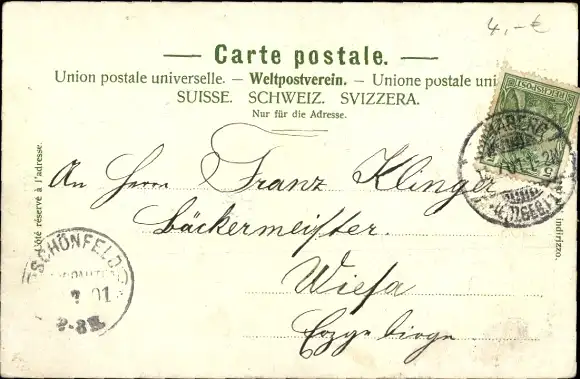 4,-€
— Carte postale. —
Union postale universelle. — Weltpostverein. — Unione postale uni
SUISSE. SCHWEIZ. SVIZZERA.
Nur für die Adresse.
Côté réservé à l'adresse.
An Herrn Franz Klinger
Bäckermeister.
Wiesa
Erzgebirge
indirizzo.
REICHSPOST
SCHÖNFELD
01
2-3N.